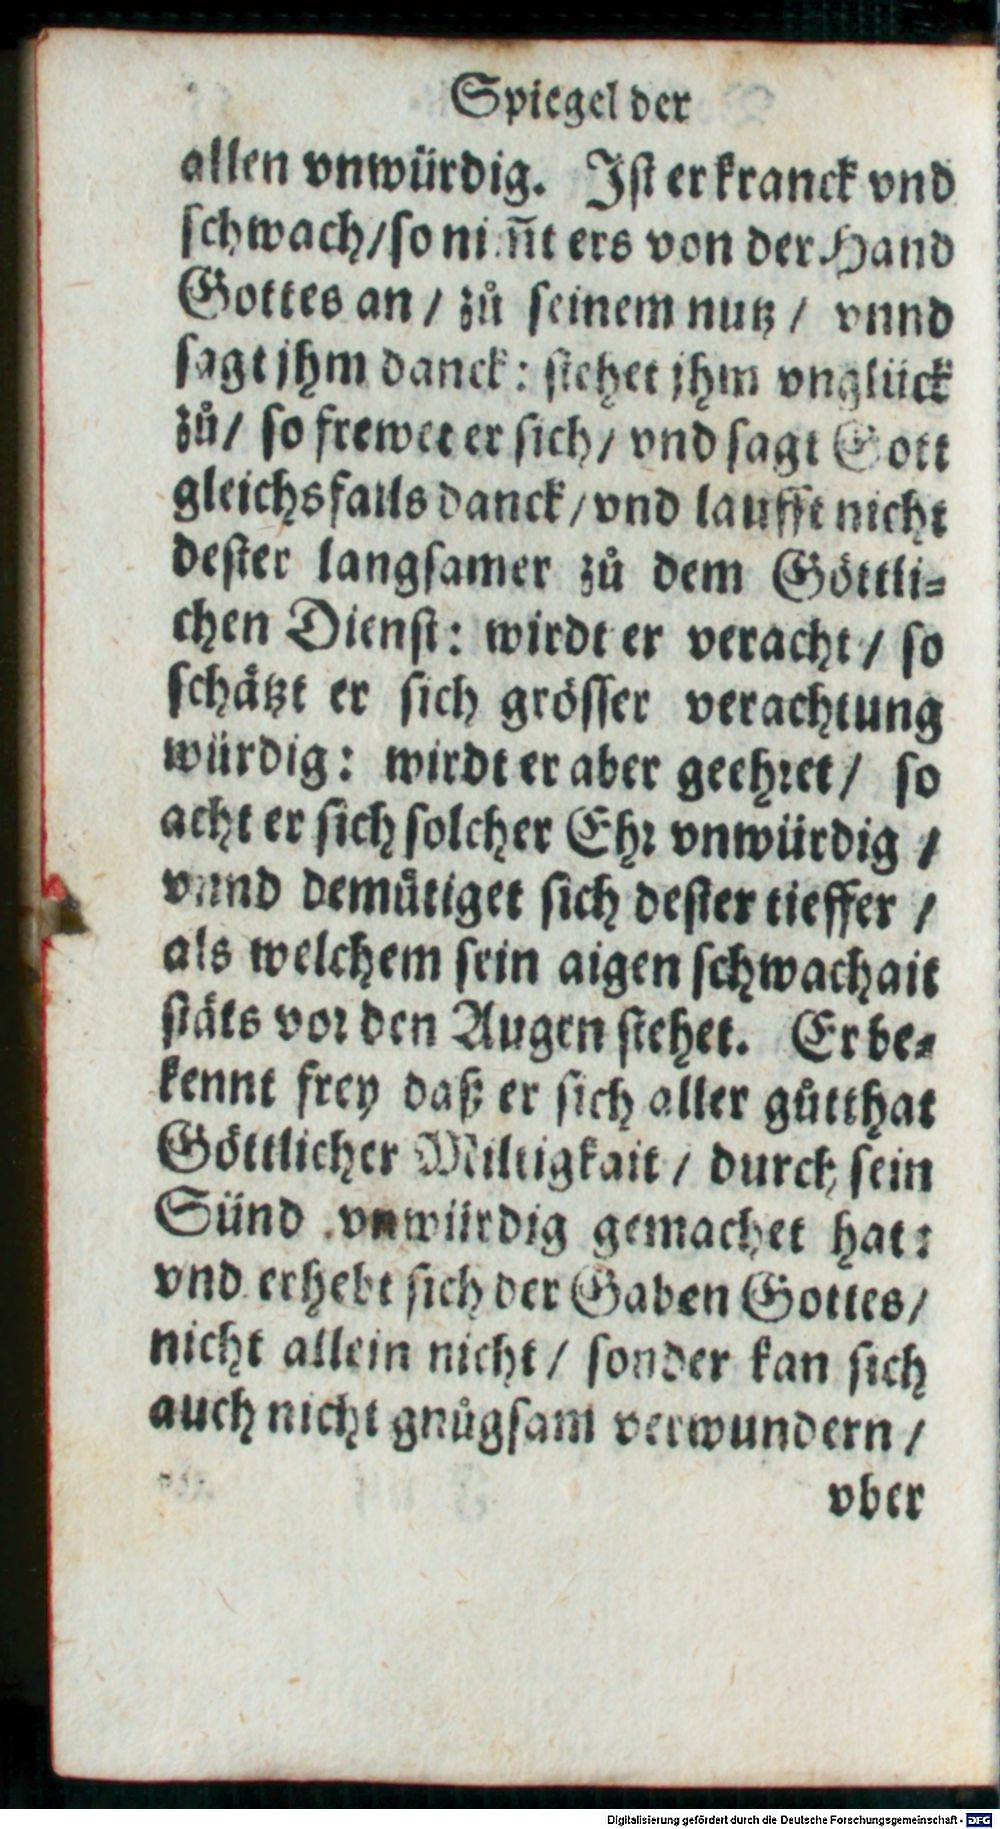 Spiegel der
allen vnwürdig. Ist er kranck vnd
schwach/ so nim̄t ers von der Hand
Gottes an / zů seinem nutz / vnnd
sagt jhm danck: stehet jhm vnglück
zů/ so frewet er sich/ vnd sagt Gott
gleichsfalls danck/ vnd laufft nicht
dester langsamer zů dem Göttli-
chen Dienst: wirdt er veracht / so
schätzt er sich grösser verachtung
würdig: wirdt er aber geehret / so
acht er sich solcher Ehr vnwürdig /
vnnd demütiget sich dester tieffer /
als welchem sein aigen schwachait
stäts vor den Augen stehet. Er be-
kennt frey daß er sich aller gůtthat
Göttlicher Miltigkait / durch sein
Sünd vnwürdig gemachet hat:
vnd erhebt sich der Gaben Gottes/
nicht allein nicht / sonder kan sich
auch nicht gnůgsam verwundern /
vber
Digitalisierung gefördert durch die Deutsche Forschungsgemeinschaft - DFG